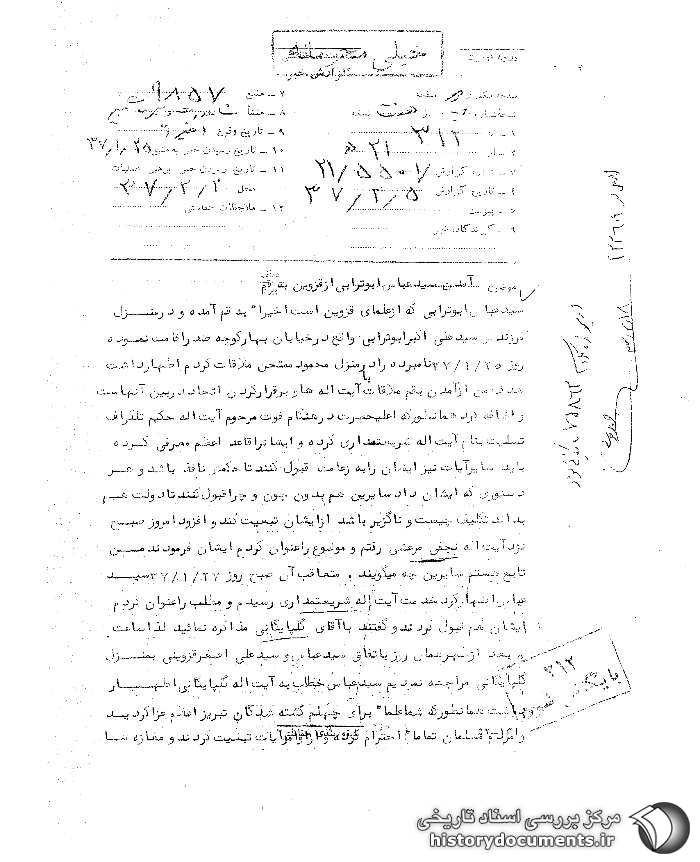 خیلی محرمانه
گزارش خبر
۷ - منبع ۹۸۵۷
۸ - منشأ
۱ - به ۳۱۲
۹ - تاریخ وقوع
۲ - از ۲۱ ه
۱۰ - تاریخ رسیدن خبر به منبع ۳۷/۱/۲۵
۳ - شماره گزارش ۲۱/۵۵۰۱
۱۱ - تاریخ رسیدن خبر برهبر عملیات
۴ - تاریخ گزارش ۳۷/۲/۵
محل ۳۷/۲/۲
۵ - پیوست
۱۲ - ملاحظات حفاظتی
۶ - گیرندگان خبر
موضوع آمدن سید عباس ابوترابی از قزوین بقم
سید عباس ابوترابی که از علمای قزوین است اخیرا" به قم آمده و در منزل
فرزندش سید علی اکبر ابوترابی واقع در خیابان بهار کوچه صدر اقامت نموده
روز ۳۷/۱/۲۵ نامبرده را در منزل محمود ممتحن ملاقات کردم اظهار داشت
هدف من از آمدن بقم ملاقات با آیت اله ها و برقرار کردن اتحاد در بین آنهاست
و اضافه کرد همانطور که اعلیحضرت در هنگام فوت مرحوم آیت اله حکیم تلگراف
تسلیت بنام آیت اله شریعتمداری کرده و ایشانرا قائد اعظم معرفی کرده
باید سایر آیات نیز ایشان را به زعامت قبول کنند تا حکمش نافذ باشد و هر
دستوری که ایشان داد سایرین هم بدون چون و چرا قبول کنند تا دولت هم
بداند تکلیف چیست و ناگزیر باشد از ایشان تبعیت کند و افزود امروز صبح
نزد آیت اله نجفی مرعشی رفتم و موضوع را عنوان کردم ایشان فرمودند من
تابع هستم سایرین چه میگویند و متعاقب آن صبح روز ۳۷/۱/۲۷ سید
عباس اظهار کرد خدمت آیت اله شریعتمداری رسیدم و مطلب را عنوان کردم
ایشان هم قبول کردند و گفتند با آقای گلپایگانی مذاکره نمائید لذا ساعت
بعد از ظهر همان روز باتفاق سید عباس و سید علی اصغر قزوینی بمنزل
گلپایگانی مراجعه نمودیم سید عباس خطاب به آیت اله گلپایگانی اظهار
داشت همانطور که شما علما" برای چهلم کشته شدگان تبریز اعلام عزا کردید
و مردم مسلمان تماما" احترام کرده و از اوامر آیات تبعیت کردند و مغازه ها
۳۱۲
بایگانی شود
مرکز بررسی اسناد تاریخی
historydocuments.ir